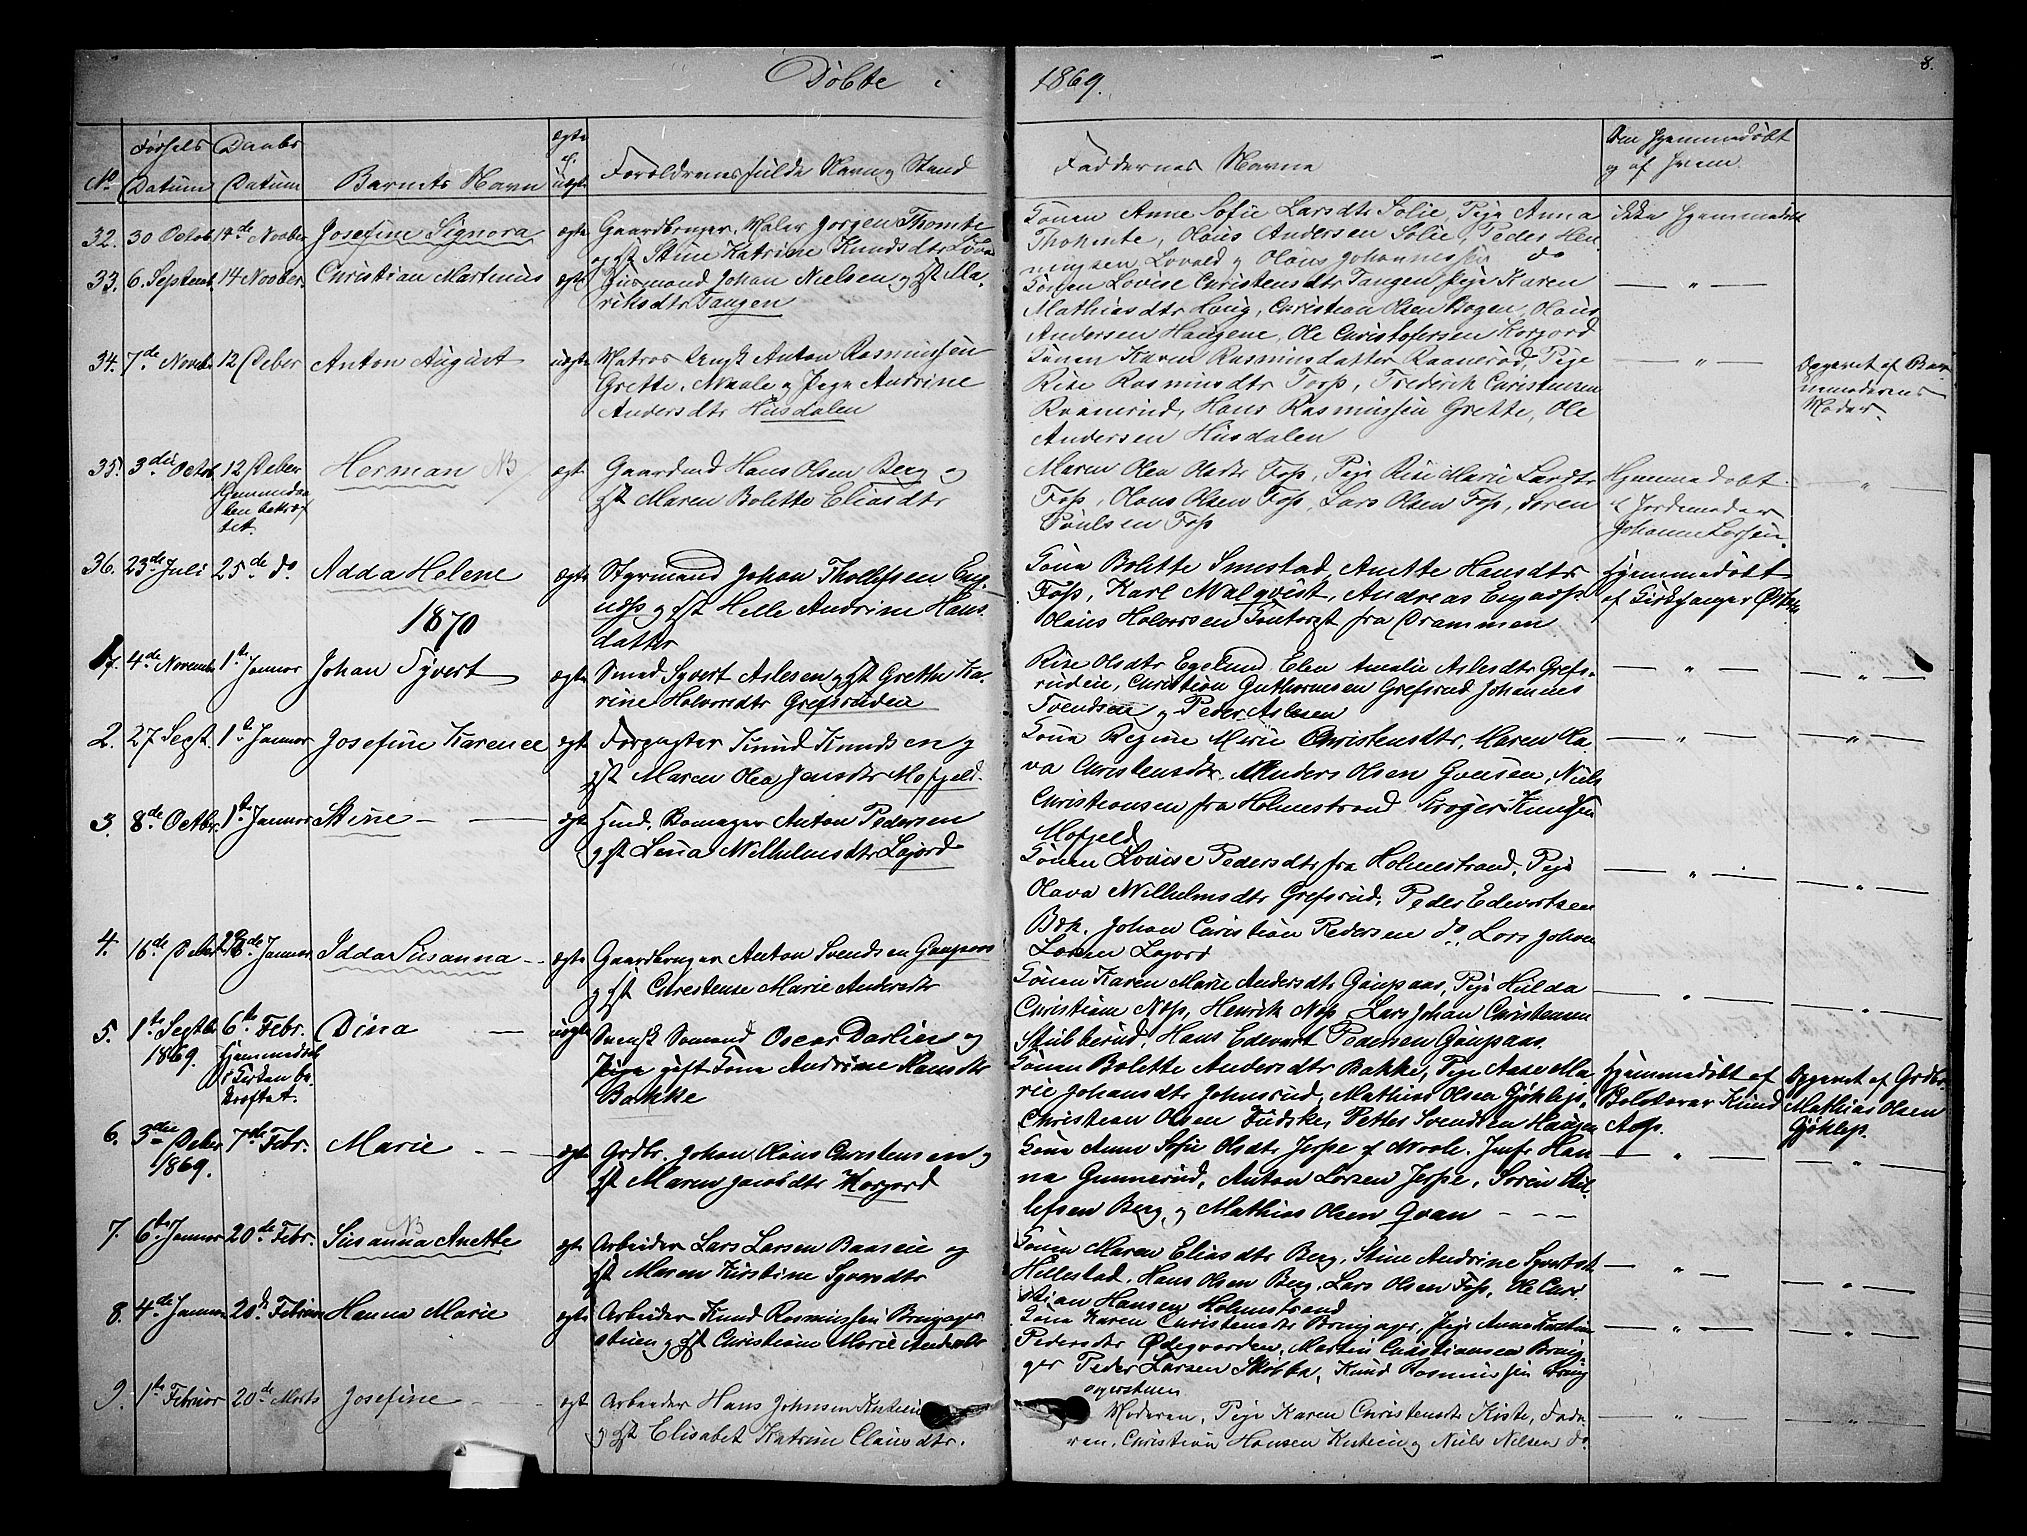 Døbte i 1869.
8.
No
Fødsels Datum
Daabs Datum
Barnets Navn
ægte el. uægte
Forældrenes fulde Navn og Stand
Faddernes Navne
Om Hjemmedøbt og af hvem.
32. 30 Octob. 14de Novber Josefine Signora ægte
Gaardbruger, Maler Jørgen Thomte
og Hst Stine Katrine Knudsdtr
Konen Anne Sofie Larsdtr Solie, Pige Anna
Thomte, Olaus Andersen Solie, Peder Hen-
ningsen Lovald og Olaus Johannessen do
ikke hjemmedøbt
33. 6. Septemb. 14 Novber. Christian Martinus ægte
Husmand Johan Nielsen og Hst Ma-
riksdtr Tangen
Konen Lovise Christensdtr Tangen, Pige Karen
Mathiasdtr Haug, Christian Olsen Bogen, Olaus
Andersen Haugene, Ole Christofersen Korgord
— " —
34. 7de Novb. 12 Deber Anton August uægte
Matros Ungk Anton Rasmussen
Grette, Vaale og Pige Andrine
Andersdtr Husdalen
Konen Karen Rasmusdatter Raanerud, Pige
Rise Rasmusdtr Torp, Frederik Christensen
Raanerud, Hans Rasmussen Grette, Ole
Andersen Husdalen
— " —
Opgivet af Bar-
nemoderens
Moder.
35. 3die Octob. 12 Deber Herman NB ægte
Hjemmedaa-
ben bekræf-
tet.
Gaardmd Hans Olsen Berg og
Hst Maren Bolette Eliasdtr
Maren Olea Olsdtr Fos, Pige Rise Marie Larsdtr
Fos, Hans Olsen Fos, Lars Olsen Fos, Søren
Poulsen Fos
Hjemmedøbt
af Jordemoder
Johanne Larsen.
— " —
36. 23de Juli 25de do. Adda Helene ægte
Styrmand Johan Thollefsen Eng-
og Hst Helle Andrine Hans-
datter
Kona Bolette Smestad, Anette Hansdtr
Fos, Karl Malqvist, Andreas
Olaus Halvorsen Kontorist fra Drammen
Hjemmedøbt
af Kirkesanger
1870
1. 4de Novemb. 1ste Januar Johan Syvert ægte
Smed Syvert Aslesen og Hst Grethe Ka-
rine Halvorsdtr Grefsruden
Rise Olsdtr Egelund, Elen Amalie Aslesdtr Grefs-
ruden, Christian Guthormsen Grefsrud, Johannes
Svendsen og Peder Aslesen
— " —
— " —
2. 27 Sept. 1ste Januar Josefine Karence ægte
Forpagter Knud Knudsen og
Hst Maren Olea Jensdtr Mofjeld.
Kona Regine Marie Christensdtr, Maren Ha-
va Christensdtr, Anders Olsen, Niels
Christiansen fra Holmestrand, Knudsen
Mofjeld
— " —
— " —
3. 8de Octbr. 1ste Januar Stine — — ægte
Husmd. Anton Pedersen
og Hst Lena Wilhelmsdtr Lajord
Konen Lovise Pedersdtr fra Holmestrand, Pige
Olava Wilhelmsdtr Grefsrud, Peder Edvartsen
Bøk. Johan Christian Pedersen do, Lars Johan
Larsen Lajord
— " —
— " —
4. 16de Deber 23de Januar Idda Susanna - - ægte
Gaardbruger Anton Svendsen Gaupaas
og Hst Christense Marie Andersdtr
Konen Karen Marie Andersdtr Gaupaas, Pige Hulda
Christine Nøss, Henrik Nøss, Lars Johan Christensen
Stubberud, Hans Edvart Pedersen Gaupaas.
— " —
— " —
5. 1ste Septb. 1869. 6te Febr. Dina — uægte
Hjemmedaab
i Kirken be-
kræftet.
Svensk Sømand Oscar Darlien og
Pige gift Kona Andrine Hansdtr
Bakke
Konen Bolette Andersdtr Bakke, Pige Aase Ma-
rie Johansdtr Johnsrud, Mathias Olsen Gjøklep,
Christian Olsen Fudske, Petter Svendsen Haugen
Hjemmedøbt af
Knud
Aas.
Opgivet af Grdbr.
Mathias Olsen
Gjøklep.
6. 3die Deber 1869. 7de Febr. Marie - - - ægte
Grdbr. Johan Olaus Christensen og
Hst Maren Jacobdtr Korgord
Kona Anne Sofie Olsdtr Jespe af Vaale. Jomfr Han-
na Gunnerud, Anton Larsen Jespe, Søren
lefsen Berg, og Mathias Olsen Gran - - -
— " —
— " —
7. 6te Januar 20de Febr. NB Susanna Anette ægte
Arbeider Lars Larsen Baaseie og
Hst Maren Kirstine Syversdtr
Konen Maren Eliasdtr Berg, Stine Andrine Syvertsd.
Hillestad, Hans Olsen Berg, Lars Olsen Fos, Ole Chri-
stian Hansen Holmestrand
— " —
— " —
8. 4de Januar 20de Februar Hanna Marie ægte
Arbeider Knud Rasmussen Brujager-
stuen og Hst Christiane Marie Andersdtr
Kona Karen Christensdtr Brujager, Pige Anne Kirstine
Pedersdtr Ødegaarden, Martin Christiansen Bruja-
ger Peder Larsen Skibba, Knud Rasmussen Bruj-
agerstuen
— " —
— " —
9. 1ste Februar 20de Marts Josefine - - - ægte
Arbeider Hans Johnsen
og Hst Elisabet Katrine Clausdtr.
Moderen, Pige Karen Christensdtr Kiste, Fade-
ren, Christian Hansen og Niels Nilsen do
— " —
— " —